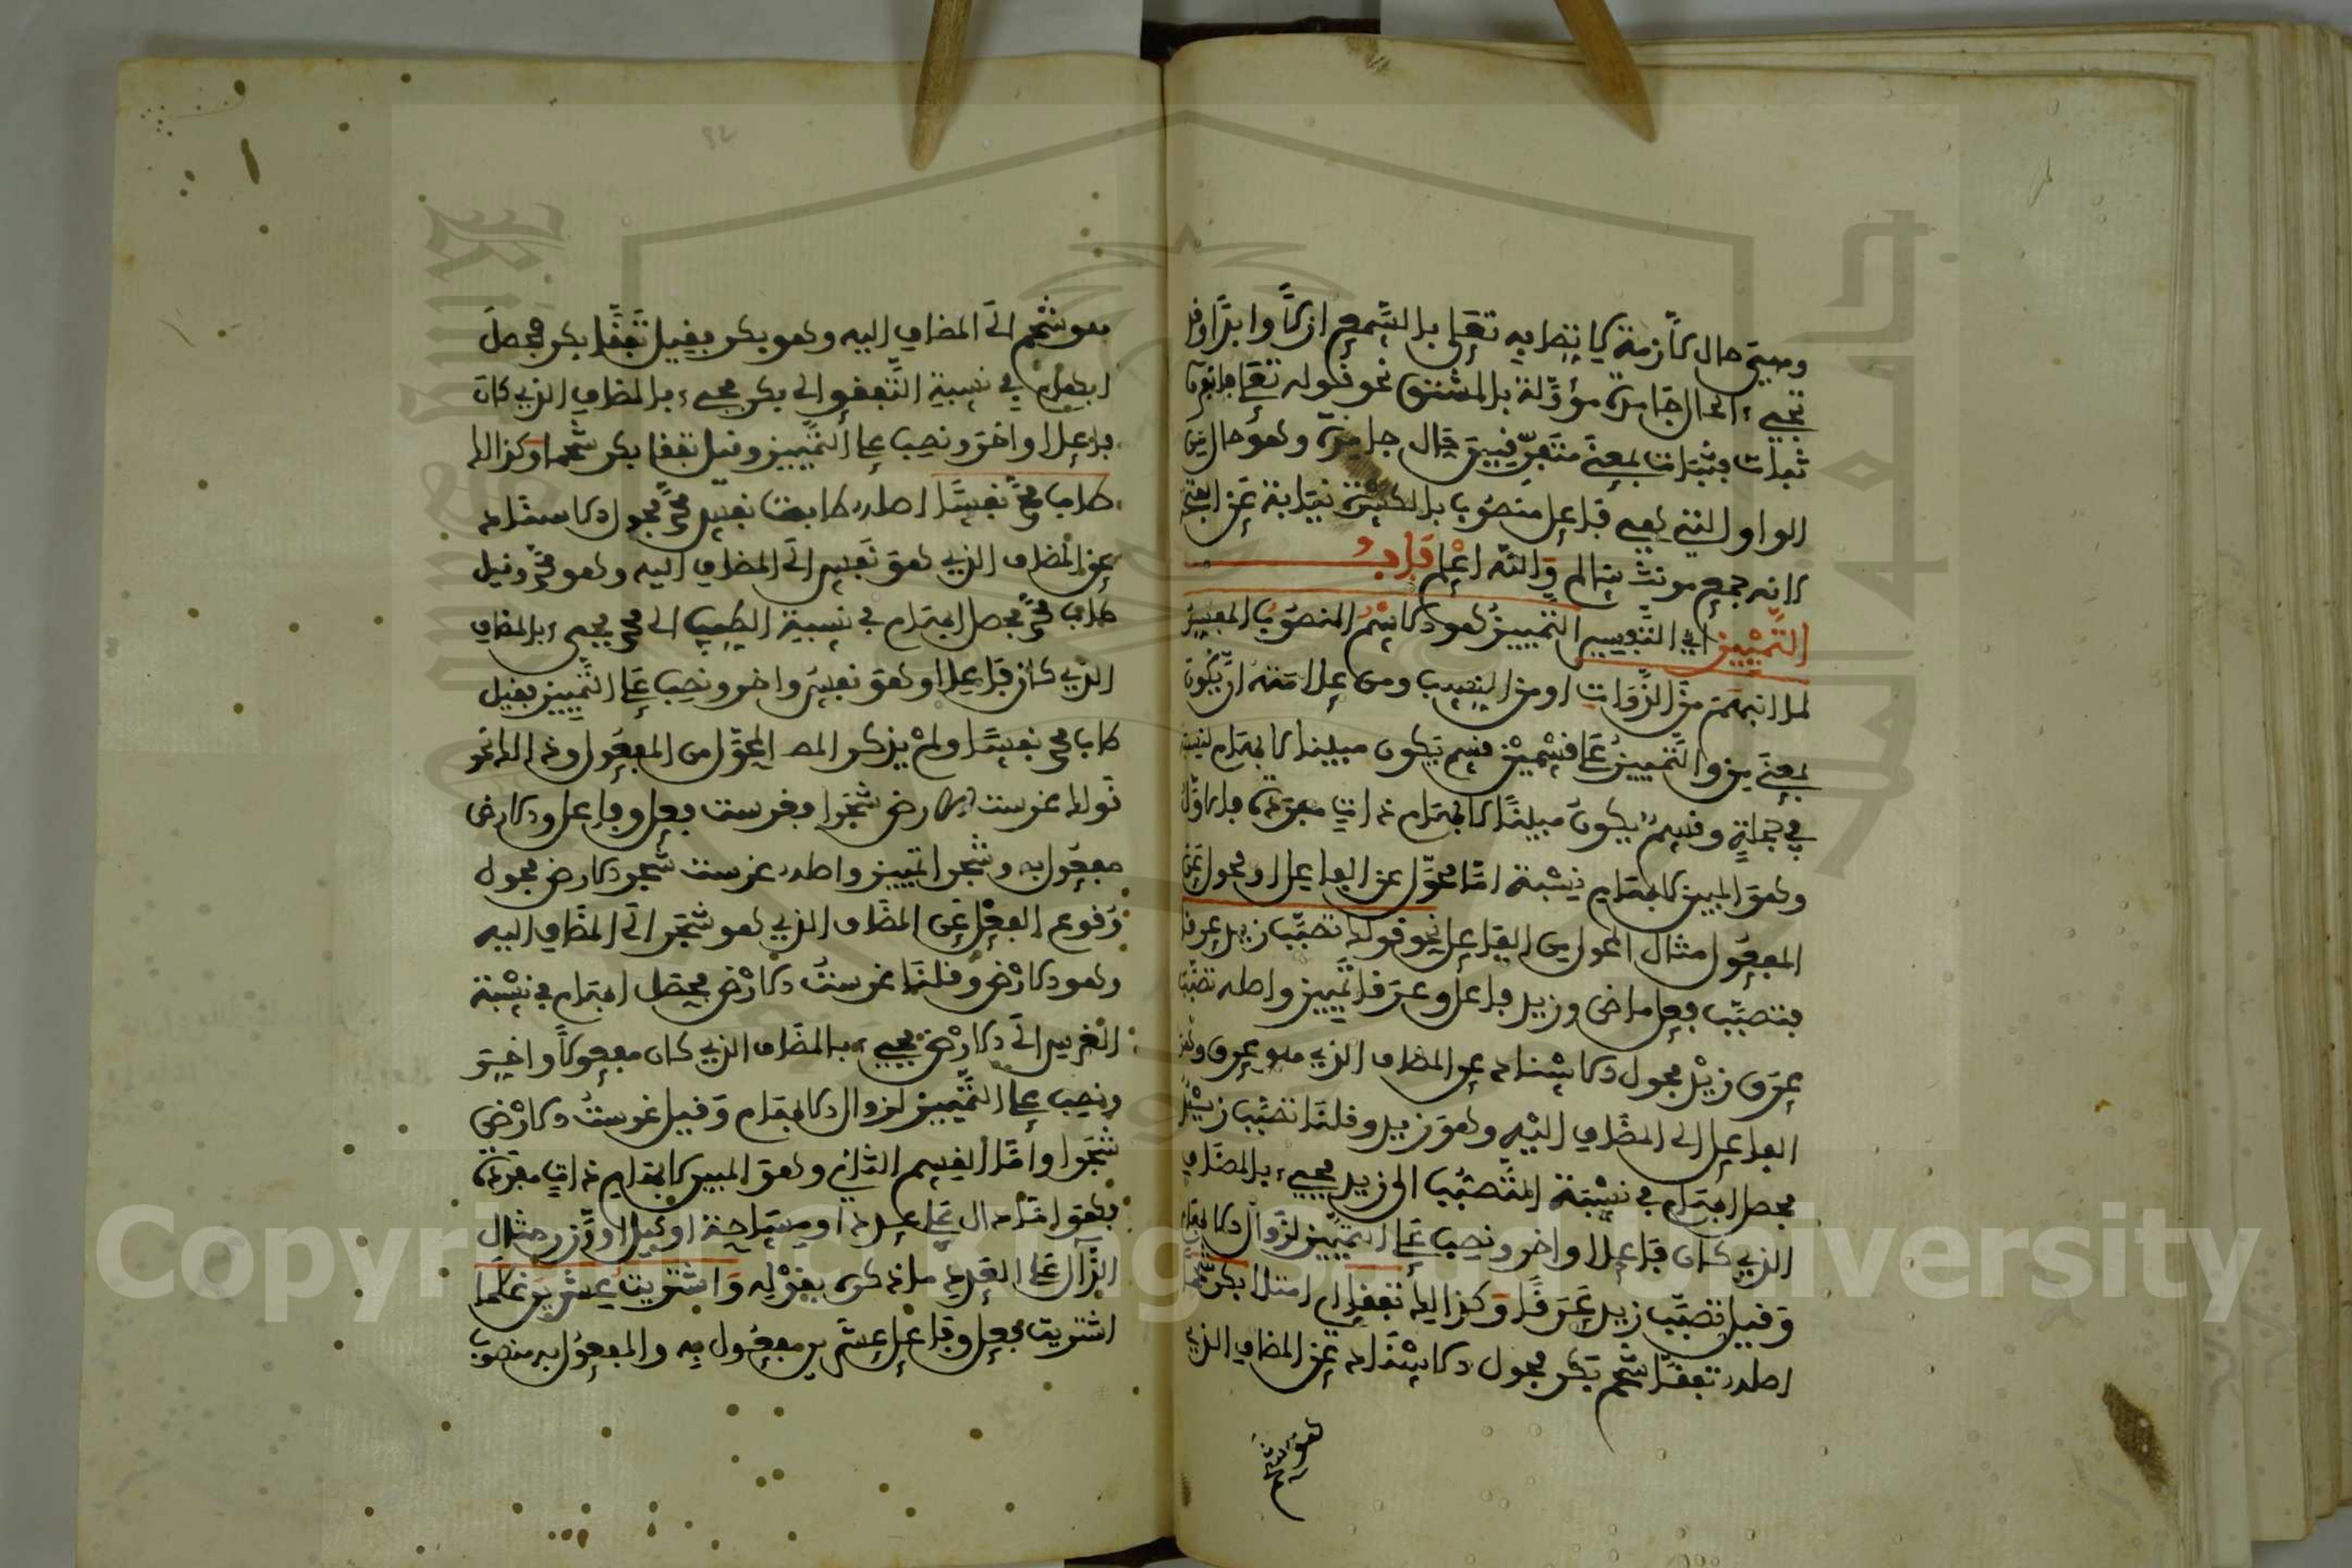 وهيئ حال لازمة لا تنتقل به تعلى بالسمع ازلا وابدا وقد
تجيء الحال جامدة مؤولة بالمشتق نحو قوله تعلى فانفروا
ثبات فثبات بمعنى متفرقين حال جامدة وهو حال من
الواو التي هي فاعل منصوب بالكسرة نيابة عن الفتحة
لانه جمع مونث سالم والله اعلم باب
التمييز اي التفسير التمييز هو الاسم المنصوب المفسر
لما انبهم من الذوات او من النسب ومن علامته ان يكون
بمعنى من والتمييز على قسمين قسم يكون مبينا لابهام نسبة
في جملة وقسم يكون مبينا لابهام ذات مفردة فالاول
وهو المبين لابهام نسبة اما محول عن الفاعل او محول عن
المفعول مثال المحول من الفاعل نحو قولك تصبب زيد عرقا
فتصبب فعل ماض وزيد فاعل وعرقا تمييز واصله تصبب
عرق زيد فحول الاسناد عن المضاف الذي هو عرق وهو
الفاعل الى المضاف اليه وهو زيد وقلنا تصبب زيد
فحصل ابهام في نسبة التصبب الى زيد فجيء بالمضاف
الذي كان فاعلا واخر ونصب على التمييز لزوال الابهام
وقيل تصبب زيد عرقا وكذالك تفقا اي امتلا بكر شحما
اصله تفقا شحم بكر فحول الاسناد عن المضاف الذي
هو شحم
هو شحم الى المضاف اليه وهو بكر فقيل تفقا بكر فحصل
ابهام في نسبة التفقؤ الى بكر فجيء بالمضاف الذي كان
فاعلا واخر ونصب على التمييز وقيل تفقا بكر شحما وكذالك
طاب محمد نفسا اصله طابت نفس محمد فحول الاسناد
عن المضاف الذي هو نفس الى المضاف اليه وهو محمد وقيل
طاب محمد فحصل ابهام في نسبة الطيب الى محمد فجيء بالمضاف
الذي كان فاعلا وهو نفس واخر ونصب على التمييز فقيل
طاب محمد نفسا ولم يذكر المص المحول من المفعول وذالك نحو
قولك غرست الارض شجرا فغرست فعل وفاعل والارض
مفعول به وشجرا تمييز واصله غرست شجر الارض فحول
وقوع الفعل عن المضاف الذي هو شجر الى المضاف اليه
وهو الارض وقلنا غرست الارض فحصل ابهام في نسبة
الغرس الى الارض فجيء بالمضاف الذي كان مفعولا واخر
ونصب على التمييز لزوال الابهام وقيل غرست الارض
شجرا واما القسم الثاني وهو المبين لابهام ذات مفردة
فهو اما دال على عدد او مساحة او كيل او وزن مثال
الدال على العدد ما ذكره بقوله واشتريت عشرين غلاما
اشتريت فعل وفاعل عشرين مفعول به والمفعول به منصوب